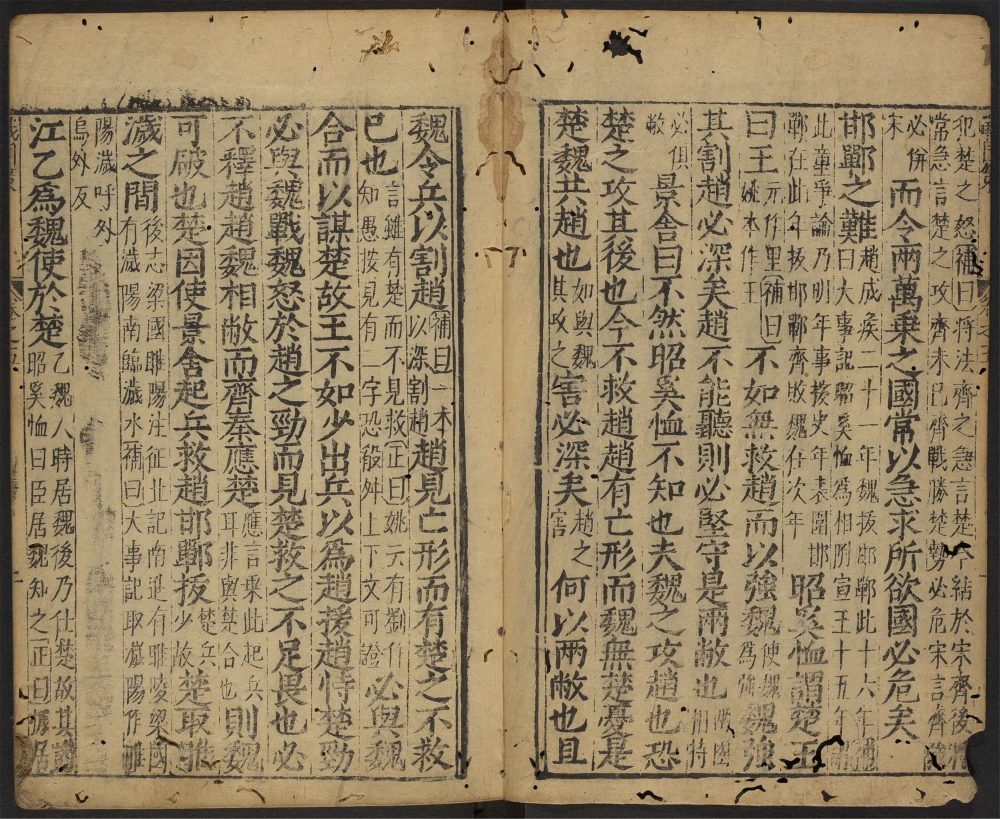 犯楚之怒補曰將法齊之急言楚不結於宋齊後
常急言楚之攻齊未已齊戰勝楚勢必危宋言齊
必併
宋
而令兩萬乘之國常以急求所欲國必危矣
邯鄲之難
趙成侯二十一年魏拔邯鄲此十六年補
曰大事記昭奚恤爲相附宣王十五年
此童爭論乃明年事按史年表圍邯
鄲在此年拔邯鄲齊敗魏在次年
昭奚恤謂楚王
曰王
元作里補曰
姚本作王
不如無救趙而以強魏
使魏
爲強
魏強
其割趙必深矣趙不能聽則必堅守是兩敝也
兩國
相持
必俱
敝
景舍曰不然昭奚恤不知也夫魏之攻趙也恐
楚之攻其後也今不救趙趙有亡形而魏無楚憂是
楚魏共趙也
如與魏
其攻之
害必深矣
趙之
害
何以兩敝也且
魏令兵以割趙
補曰一本
以深割趙
趙見亡形而有楚之不救
已也
言雖有楚而不見救正曰姚云有劉作
知愚按見有二字恐殽舛上下文可證
必與魏
合而以謀楚故王不如少出兵以爲趙援趙恃楚勁
必與魏戰魏怒於趙之勁而見楚救之不足畏也必
不釋趙趙魏相敝而齊秦應楚
應言乗此起兵
耳非與楚合也
則魏
可破也楚因使景舍起兵救趙邯鄲拔
楚兵
少故
楚取雎
濊之間
後志梁國睢陽注征北記南進有睢陵梁國
有濊陽南臨濊水補曰大事記取濊陽作雎
陽濊呼外
烏外反
江乙爲魏使於楚
乙魏人時居魏後乃仕楚故其譖
昭奚恤曰臣居魏知之正曰據居